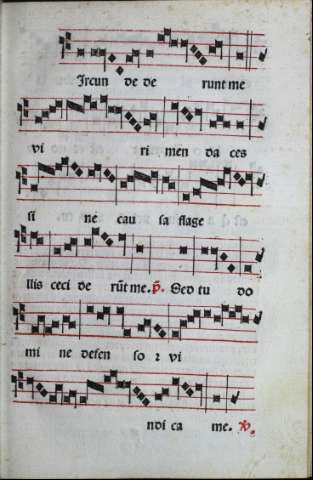 Ircun de de runt me
vi ri men da ces
si ne cau sa flage
llis ceci de rūt me. p̄. Sed tu do
mi ne defen so ꝛ vi
ndi ca me. ꝟ.